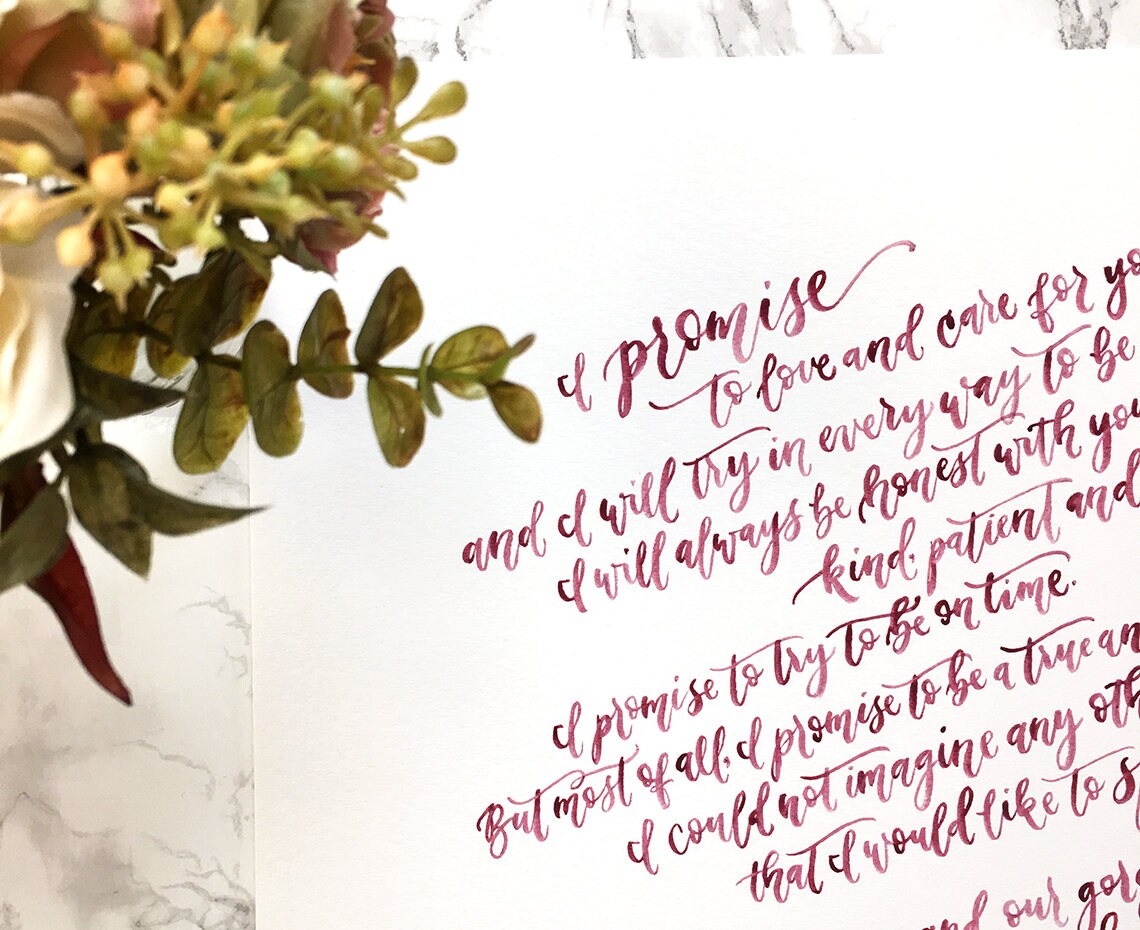 I promise
to love and care for yo
and I will try in every way to be
I will always be honest with you
kind, patient and
I promise to try to be on time.
But most of all, I promise to be a true an
I could not imagine any oth
that I would like to sp
and our gorg